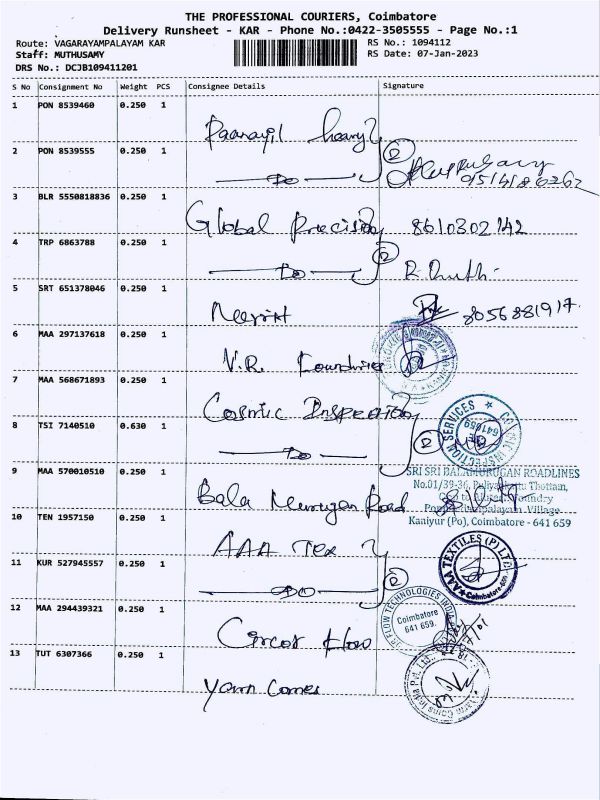 THE PROFESSIONAL COURIERS, Coimbatore
Delivery Runsheet - KAR - Phone No.:0422-3505555 - Page No.:1
Route: VAGARAYAMPALAYAM KAR RS No.: 1094112
Staff: MUTHUSAMY RS Date: 07-Jan-2023
DRS No.: DCJB109411201
S No Consignment No Weight PCS Consignee Details Signature
1 PON 8539460 0.250 1
2 PON 8539555 0.250 1
Do
3 BLR 5550818836 0.250 1
Global Precision 8610302142
4 TRP 6863788 0.250 1
Do
5 SRT 651378046 0.250 1
8056881917
6 MAA 297137618 0.250 1
V.R. Foundries
7 MAA 568671893 0.250 1
Cosmic Inspection
8 TSI 7140510 0.630 1
Do
COSMIC INSPECTION SERVICES
641659
9 MAA 570010510 0.250 1
SRI SRI BALAMURUGAN ROADLINES
No.01/39-36,
Kaniyur (Po), Coimbatore - 641 659
Bala Murugan Road
10 TEN 1957150 0.250 1
AAA Tex
AAA TEXTILES (P) LTD
11 KUR 527945557 0.250 1
Do
12 MAA 294439321 0.250 1
FLOW TECHNOLOGIES INDIA
Coimbatore
641 659.
Circor Flow
13 TUT 6307366 0.250 1
Yarn Cones